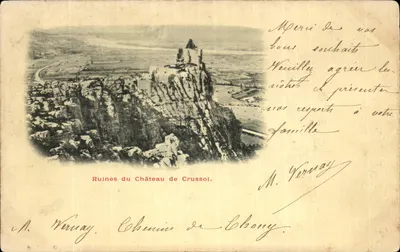 Merci de vos
bons souhaits
Veuillez agréer les
nôtres et présenter
nos respects à votre
famille
M. Vernay
Ruines du Château de Crussol.
M. Vernay, Chemin de Chony